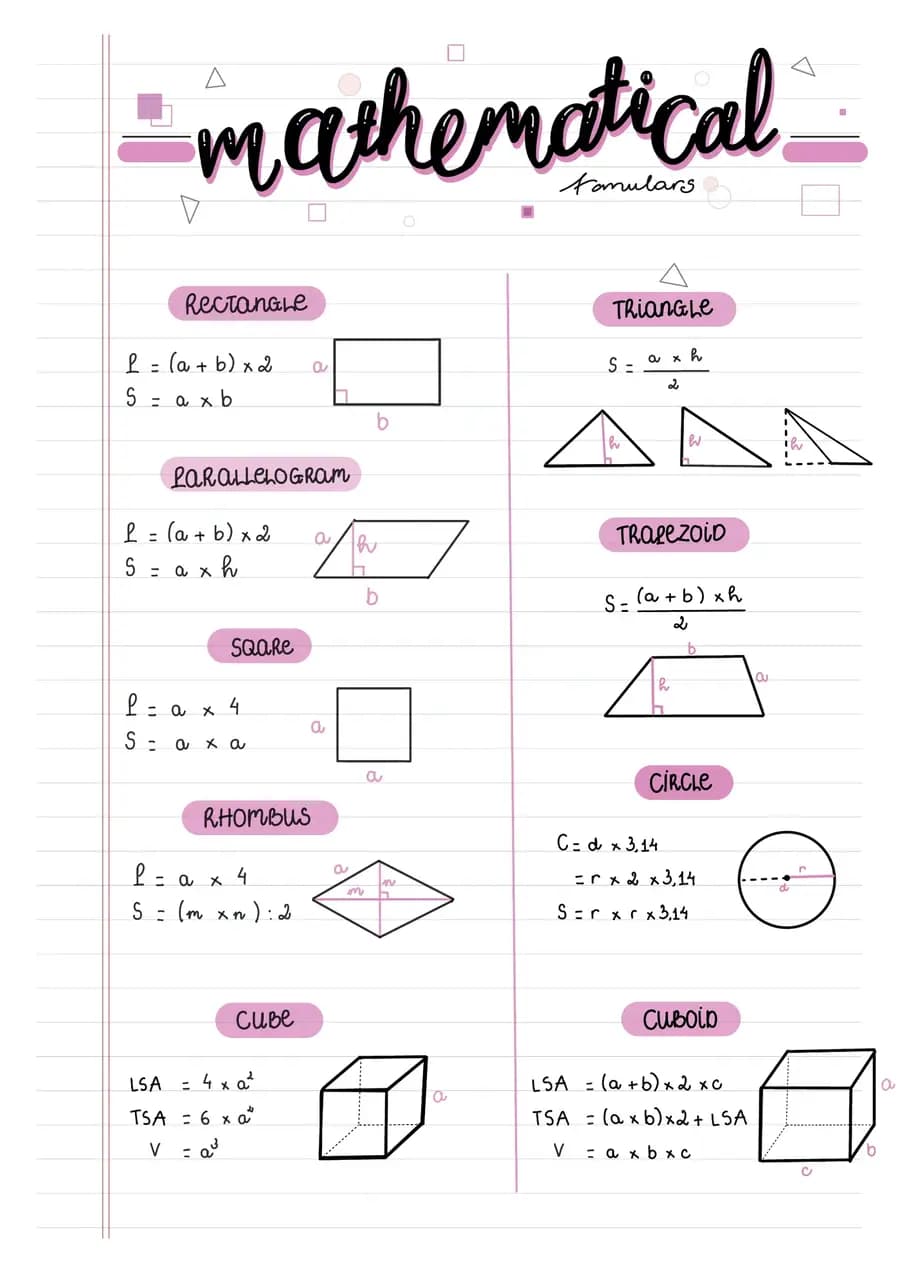 mathematical
fomulars
RECTANGLE
P = (a + b) × 2
S = a × b
a
b
PARALLELOGRAM
P = (a + b) × 2
S = a × h
a
h
b
SQARE
P = a × 4
S = a × a
a
a
RHOMBUS
P = a × 4
S = (m × n) : 2
a
m
n
CUBE
LSA = 4 × a²
TSA = 6 × a²
V = a³
a
TRIANGLE
S = a × h
2
h
h
h
TRAPEZOID
S = (a + b) × h
2
b
h
a
CIRCLE
C = d × 3,14
= r × 2 × 3,14
S = r × r × 3,14
r
d
CUBOID
LSA = (a + b) × 2 × c
TSA = (a × b) × 2 + LSA
V = a × b × c
a
b
c